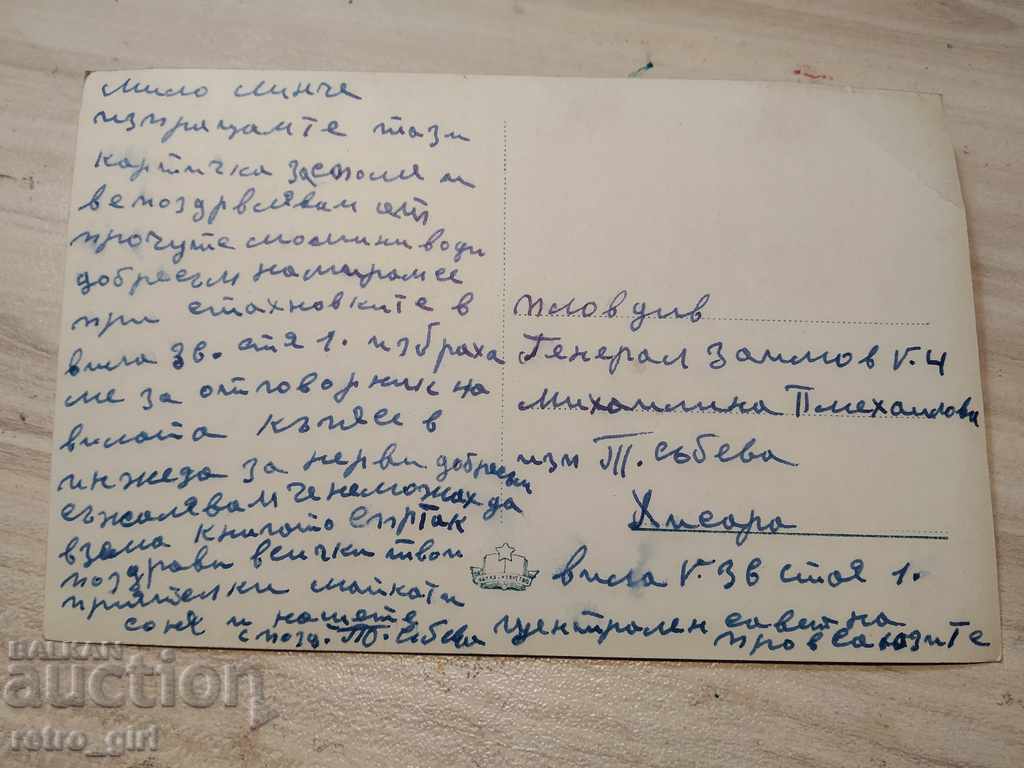 мило минче
изпращамте тази
картичка заспомя и
ве поздрвлявам от
прочуте момини води
добресъм намирамсе
при стахновките в
вила 3в. стя 1. избраха
ме за отговорник на
вилата къпясе в
инжеда за нерви добресъм
съжалявам ченеможах да
взема книгата сиртак
поздрави всички твои
приятелки майкати
соня и нашете
с позд. Т. Събева
Пловдив
Генерал Заимов № 4
Михаилина П михаилова
изп Т. Събева
Хисаря
вила № 3в стая 1.
централен савет на
провсаюзите
BALKAN
auction
retro_girl